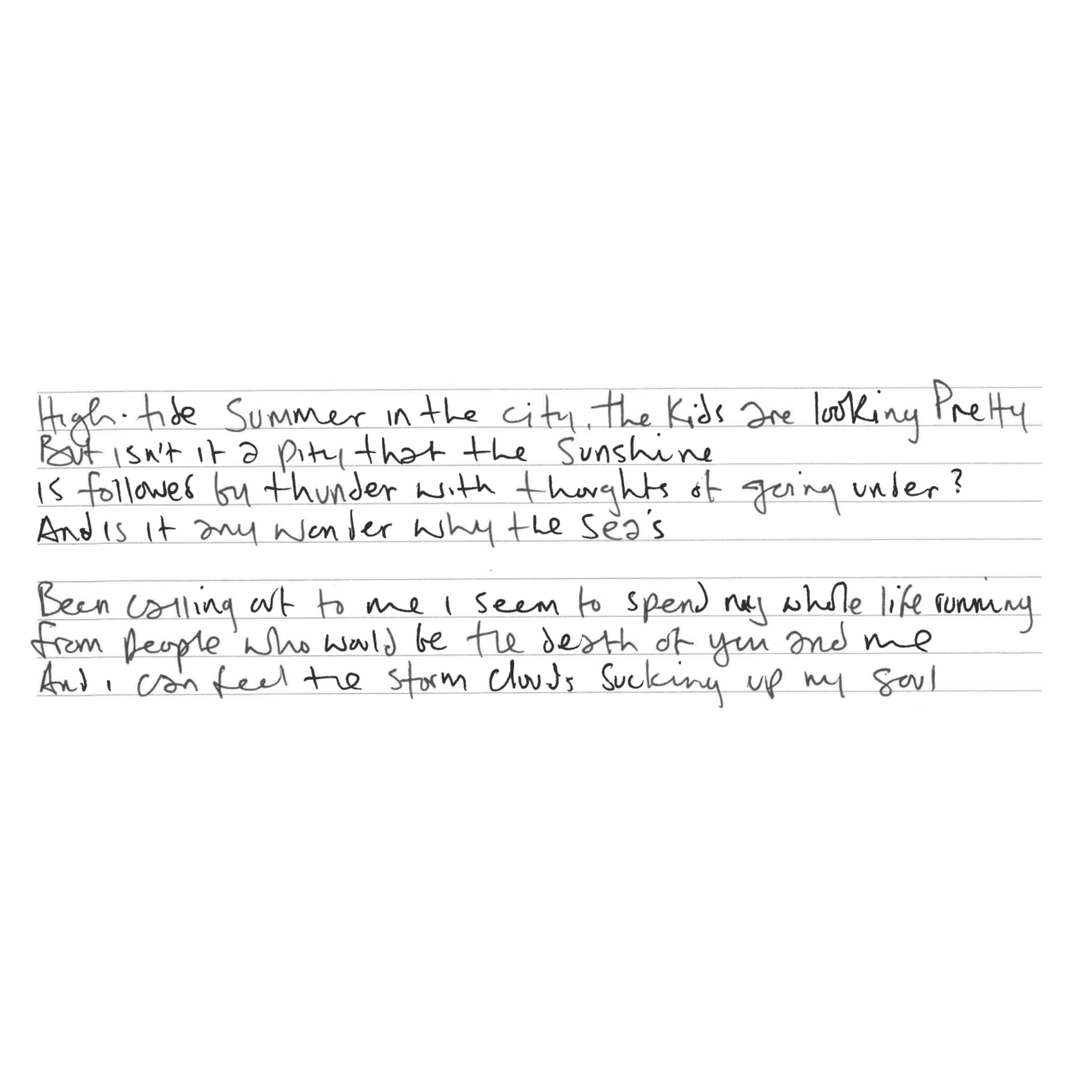 High-tide Summer in the city, the Kids are looking Pretty
But isn't it a pity that the Sunshine
is followed by thunder with thoughts of going under?
And is it any wonder why the sea's
Been calling out to me I seem to spend my whole life running
from people who would be the death of you and me
And i can feel the storm clouds sucking up my soul